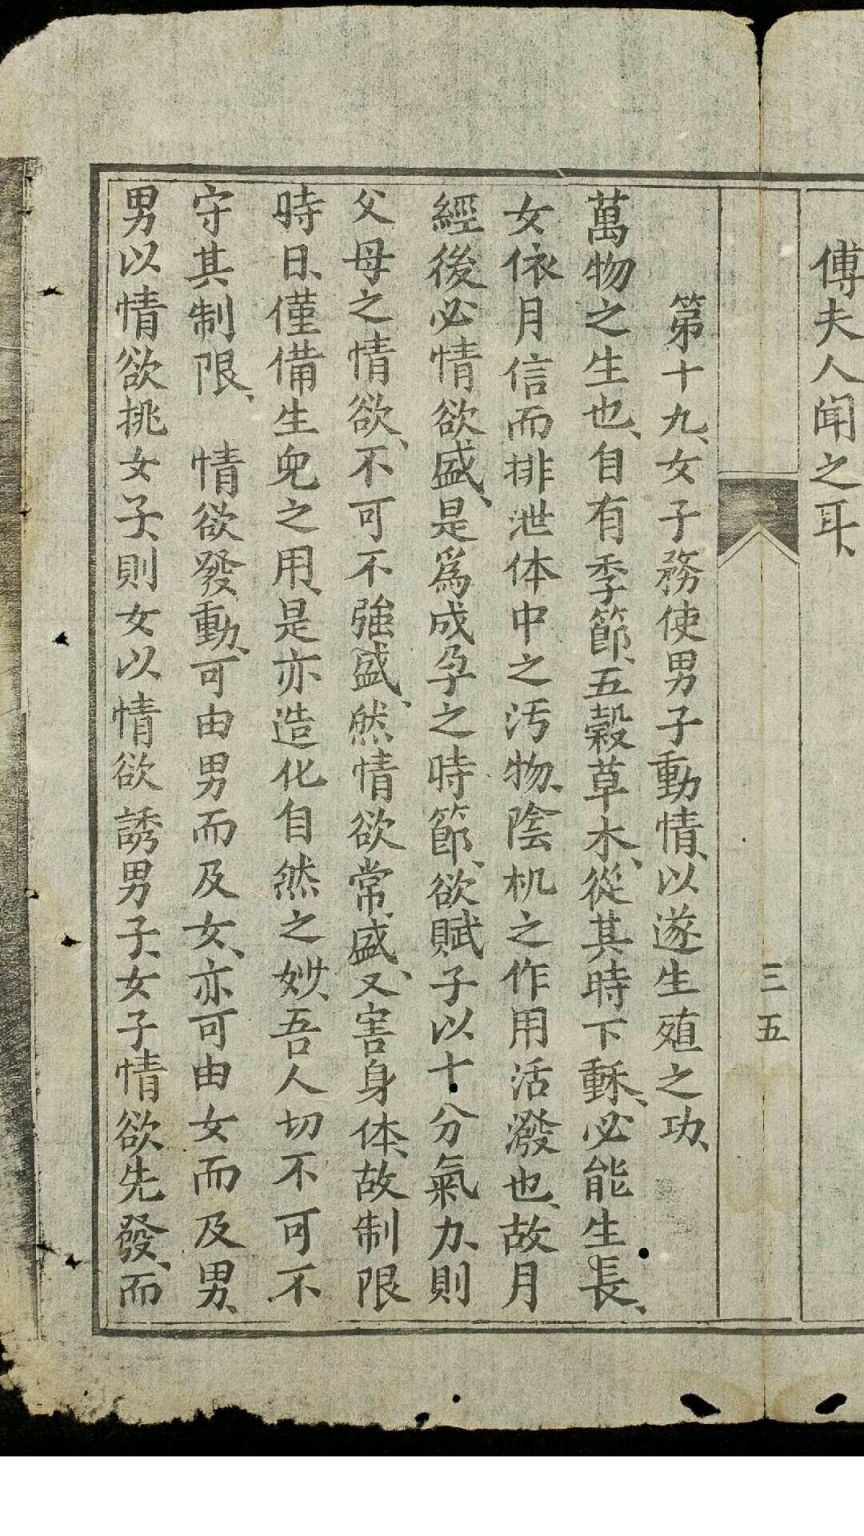 傅夫人聞之耳、
三五
第十九、女子務使男子動情、以遂生殖之功、
萬物之生也、自有季節、五穀草木、從其時下種、必能生長、
女依月信而排泄体中之汚物、陰机之作用活潑也、故月
經後必情欲盛、是爲成孕之時節、欲賦子以十分氣力、則
父母之情欲、不可不強盛、然情欲常盛、又害身体、故制限
時日、僅備生兒之用、是亦造化自然之妙、吾人切不可不
守其制限、　情欲發動、可由男而及女、亦可由女而及男、
男以情欲挑女子、則女以情欲誘男子、女子情欲先發、而